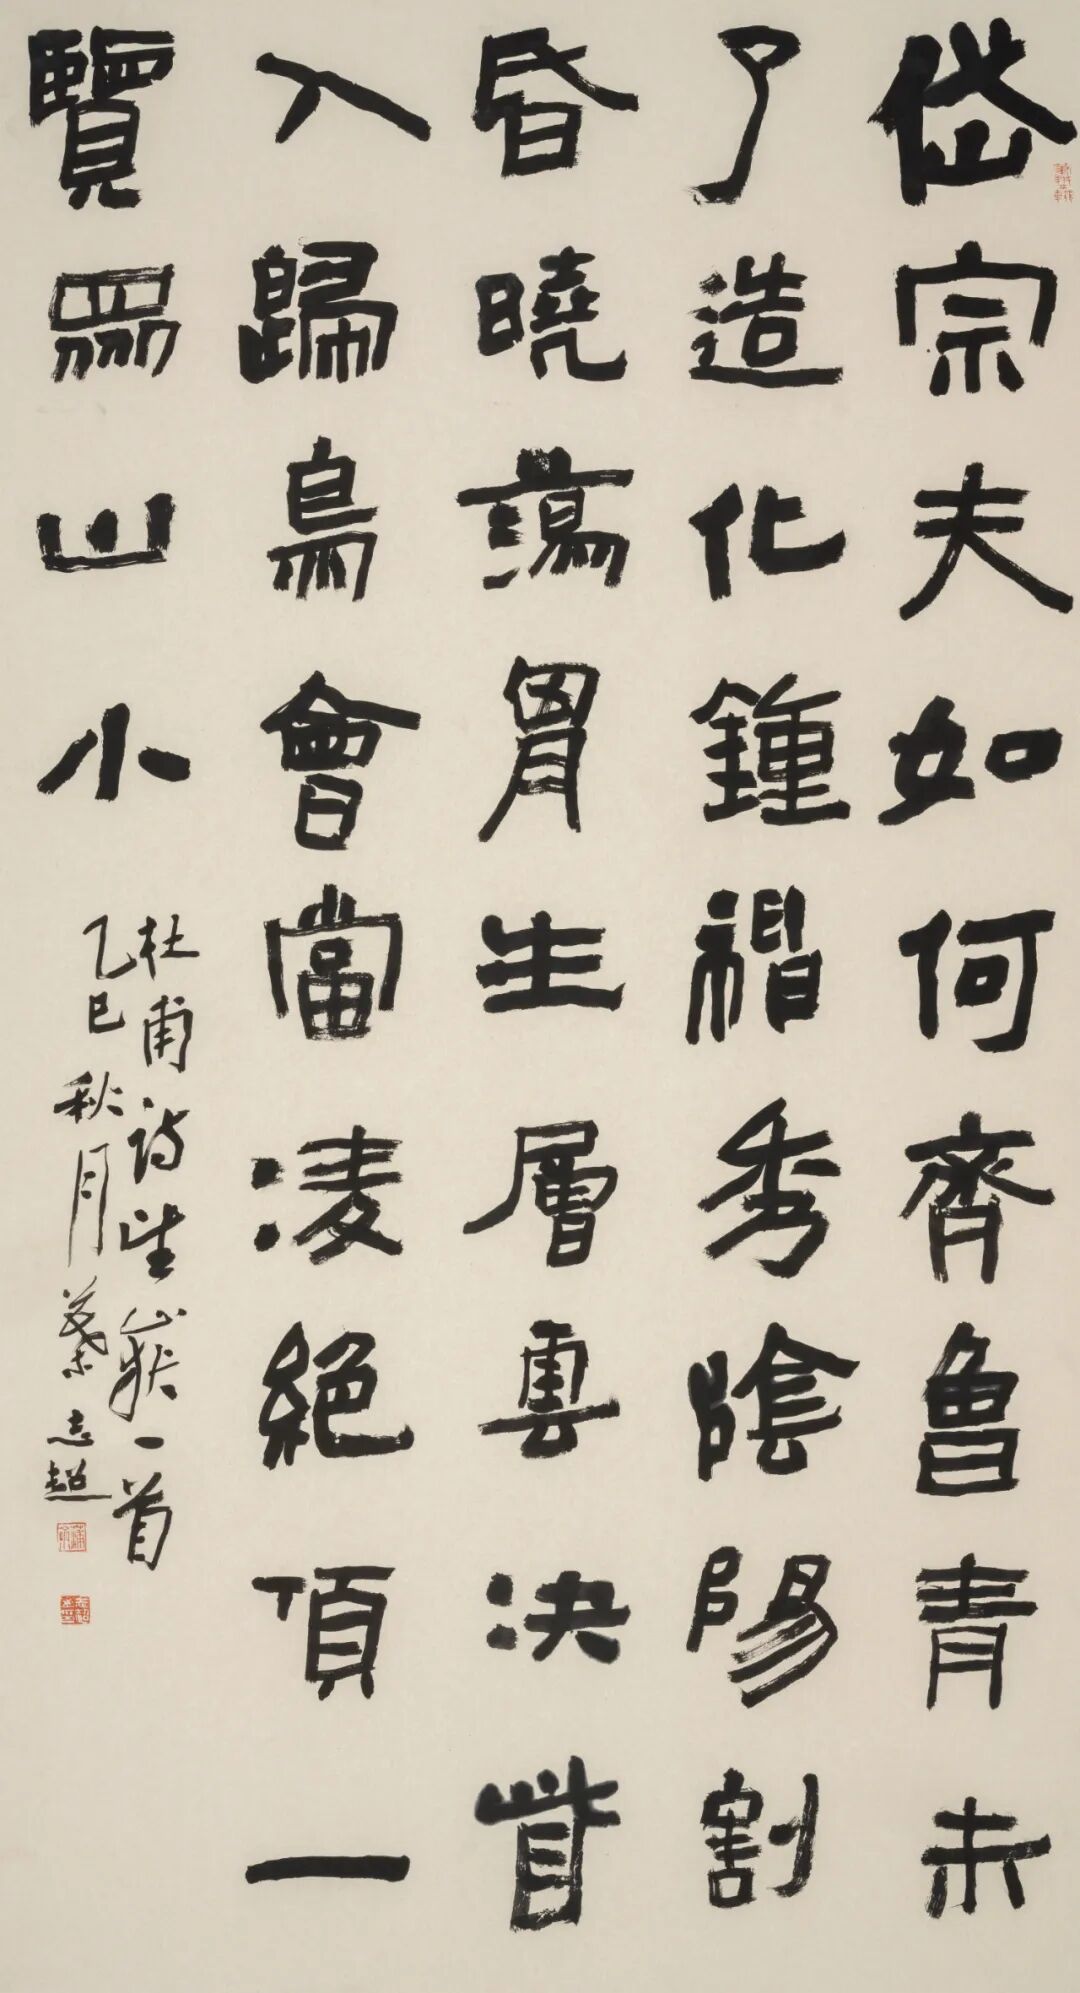 岱宗夫如何齊魯青未
了造化鍾神秀陰陽割
昏曉蕩胷生層雲決眥
入歸鳥會當凌絕頂一
覽眾山小
杜甫詩望嶽一首
乙巳秋月志超